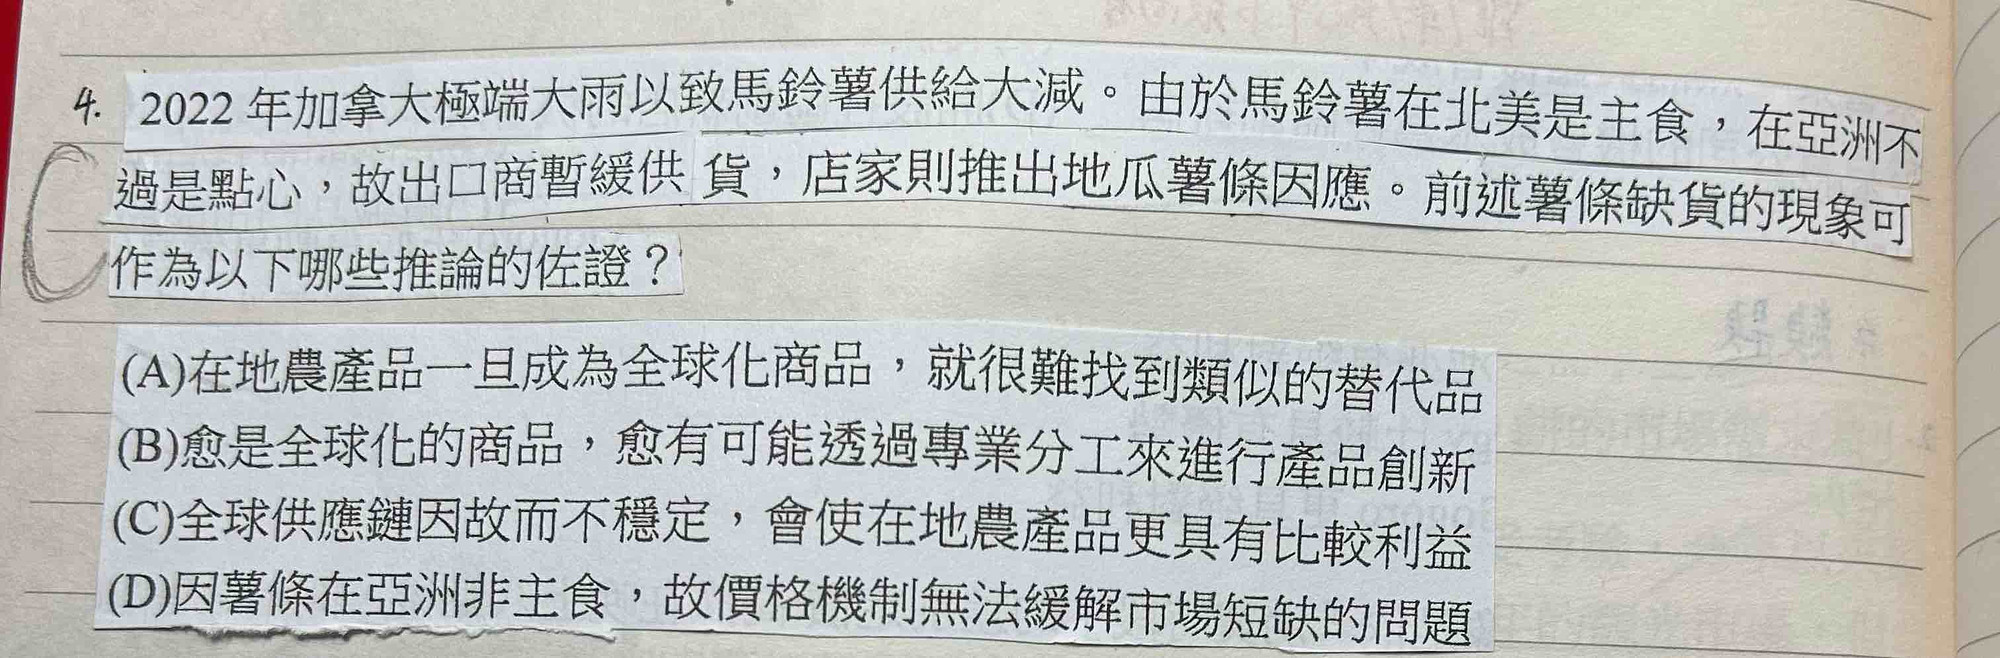 4. 2022 年加拿大極端大雨以致馬鈴薯供給大減。由於馬鈴薯在北美是主食，在亞洲不
C 過是點心，故出口商暫緩供貨，店家則推出地瓜薯條因應。前述薯條缺貨的現象可
作為以下哪些推論的佐證？
(A)在地農產品一旦成為全球化商品，就很難找到類似的替代品
(B)愈是全球化的商品，愈有可能透過專業分工來進行產品創新
(C)全球供應鏈因故而不穩定，會使在地農產品更具有比較利益
(D)因薯條在亞洲非主食，故價格機制無法緩解市場短缺的問題